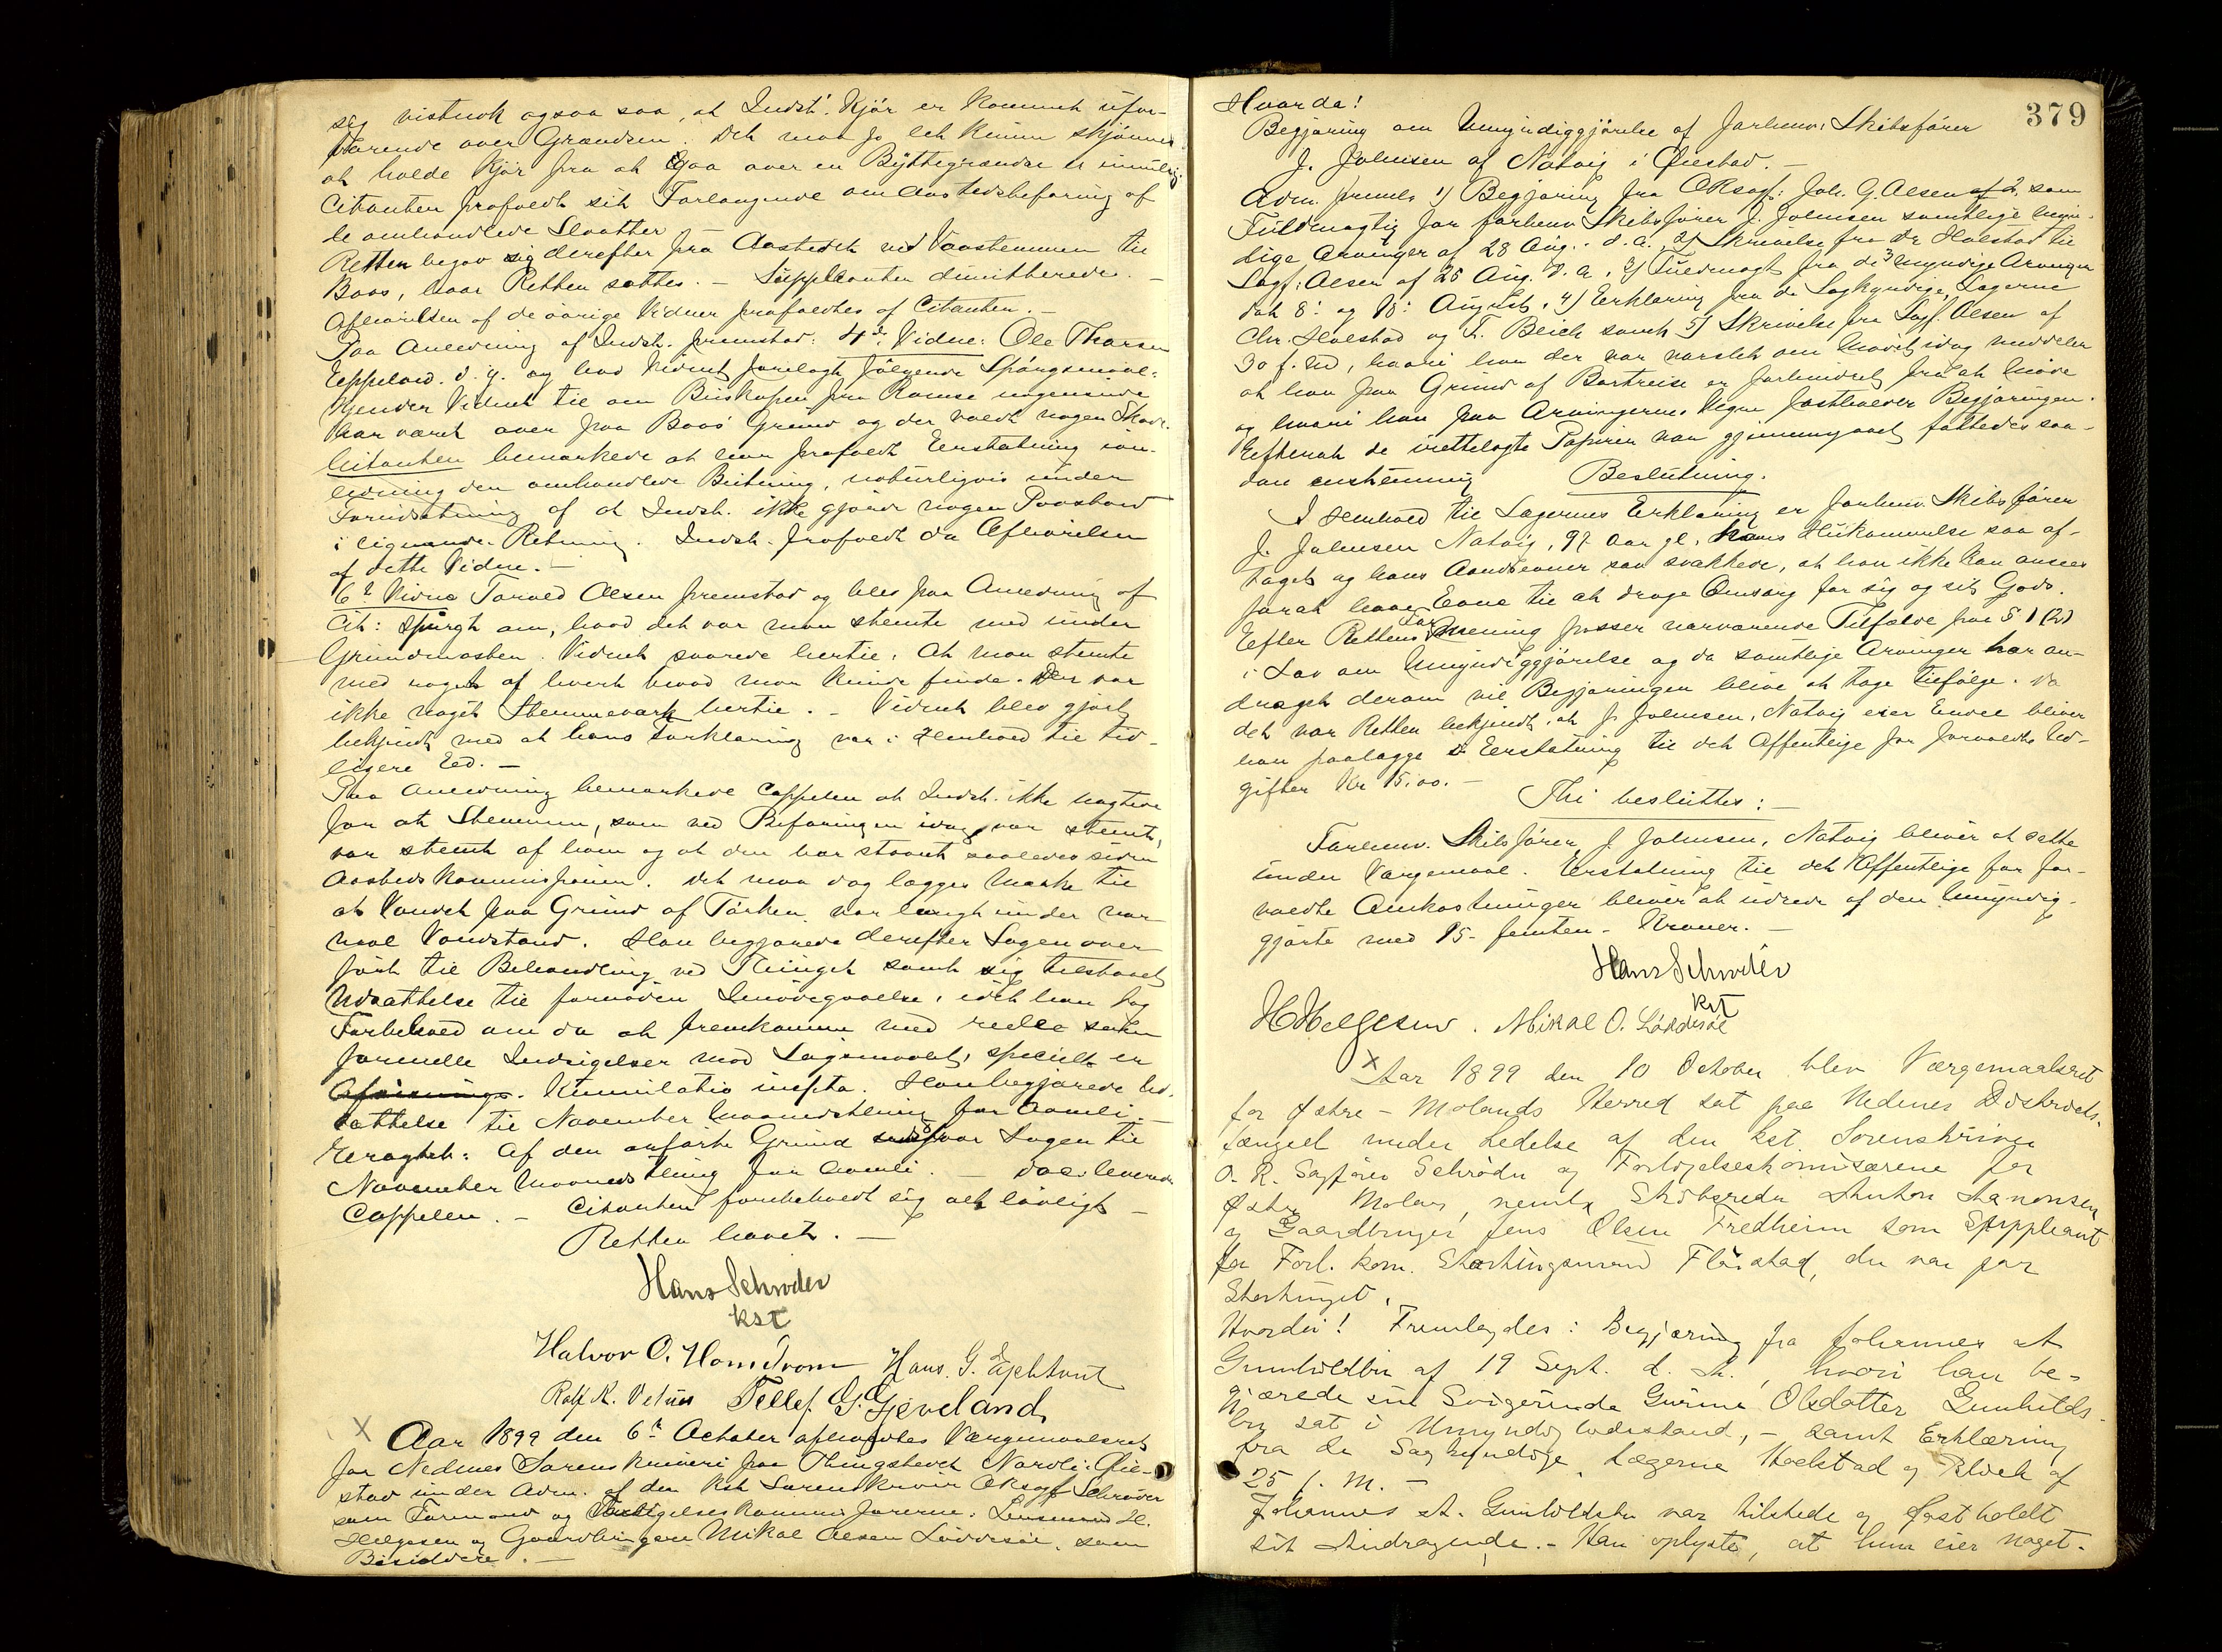 sig vistnok ogsaa saa, at Indst. Kjör er kommet ufor-
varende over Grændsen. Det maa jo let kunne skjönnes
at holde Kjör fra at gaa over en Byttegrændse er umulig.
Citanten frafaldt sit Forlangende om Aastedsbefaring af
de omhandlede Slaatter
Retten begav sig derefter fra Aastedet ved Vasstemmen til
Boos, hvor Retten sattes. – Supplianten dimitterede. –
Afhörelsen af de övrige Vidner frafaldtes af Citanten. –
Paa Anledning af Indst. fremstod: 4de Vidne: Ole Thorsen
Eppeland. d. y. og blev Vidnet forelagt fölgende Spörgsmaal:
Kjender Vidnet til om Buskapen fra Ramse nogensinde
har været over paa Boos Grund og der voldt nogen Skade.
Citanten bemærkede at han frafaldt Erstatning
den omhandlede Beitning, naturligvis under
Forudsætning af at Indst. ikke gjorde nogen Paastand
i lignende Retning. Indst. frafaldt da Afhörelsen
af dette Vidne. –
6te Vidne Torvald Olsen fremstod og blev paa Anledning af
Cit: spurgt om, hvad det var man stemte med under
Grundmasten. Vidnet svarede hertil: At man stemte
med noget af hvert hvad man kunde finde. Der var
ikke noget Stemmevark hertil. – Vidnet blev gjort
bekjendt med at hans Forklaring var i Henhold til tid-
ligere Eed. –
Paa Anledning bemærkede Cappelen at Indst. ikke nægtede
for at Stemmen, som ved Befaringen idag var stemt,
var stemt af ham og at den har staaet saaledes siden
Aastedskommissionen. Det maa dog lægges Mærke til
at Vandet paa Grund af Tørken var langt under nor-
mal Vandstand. Han begjærede derefter Sagen over-
fört til Behandling ved Thinget samt sig tilstaaet
Udsættelse til fornöden Imödegaaelse, idet han tog
Forbehold om da at fremkomme med reelle
formelle Indsigelser mod Søgsmaalet, specielt en
Kumulatio inepta. Han begjærede Ud-
sættelse til November Maanedsthing for Aamli. –
Eragtet: Af den anförte Grund udsattes Sagen til
November Maaneds thing for Aamli. –
Cappelen. – Citanten forbeholdt sig alt lovligt –
Retten hævet. –
Hans Schrøder
kst
Halvor O. Homdrom Hans. G.
Rolf K. Tellef. G. Gjeveland
X Aar 1899 den 6te October afholdtes Værgemaalsret
for Nedenes Sorenskriveri paa Thingstedet Naroli: Øie-
stad under Adm. af den kst Sorenskriver OR sagf Schrøder
som Formand og Forligelseskommissærerne. Lensmand H.
Helgesen og Gaardbruger Mikal Olsen Löddesöl. som
Bisiddere. –
379
Hvorda!
Begjæring om Umyndiggjörelse af forhenv. Skibsförer
J. Johnsen af Natvig i Øiestad. –
Adm. freml. 1) Begjæring fra ORsagf. Joh. G. Olsen som
Fuldmægtig for forhenv. Skibsförer J. Johnsen samtlige myn-
dige Arvinger af 28 Aug. d. A., 2) Skrivelse fra Dr Holstad til
Sagf. Olsen af 25 Aug. d. A., 3) Fuldmagt fra de 3 myndige Arvinger
dat 8: og 18: August, 4) Erklæring fra de Sagkyndige, Lægerne
Chr. Holstad og F. Beich samt 5) Skrivelse fra Sagf. Olsen af
30 f. Md, hvori han der var varslet om Mödet idag meddeler
at han paa Grund af Bortreise er forhindret fra at möde
og hvori han paa Arvingernes Vegne fastholder Begjæringen.
Efterat de irettelagte Papirer var gjennemgaaet fattedes saa-
dan enstemmig Beslutning.
I Henhold til Lægernes Erklæring er forhenv. Skibsförer
J. Johnsen Natvig, 97 Aar gl., hans Hukommelse saa af-
taget og hans Aandsevner saa svækkede, at han ikke kan ansees
for at have Evne til at drage Omsorg for sig og sit Gods.
Efter Rettens Formening passer nærværende Tilfælde paa § 1 (2)
i Lov om Umyndiggjörelse og da samtlige Arvinger har an-
draget derom vil Begjæringen blive at tage tilfölge. Da
det var Retten bekjendt, at J. Johnsen, Natvig eier Endel bliver
han paalagge Erstatning til det Offentlige for forvoldte Ud-
gifter Kr 15.00. –
Thi besluttes: –
Forhenv. Skibsförer J Johnsen, Natvig bliver at sætte
under Værgemaal. Erstatning til det Offentlige for for-
voldte Omkostninger bliver at udrede af den Umyndig-
gjorte med 15 – femten – Kroner. –
Hans Schrøder
kst
H Helgesen. Mikal O. Löddesöl
X Aar 1899 den 10 October blev Værgemaalsret
for Østre – Molands Herred sat paa Nedenes Distrikts-
fængsel under Ledelse af den kst. Sorenskriver
O. R. Sagförer Schröder og Forligelseskomisærene for
Østre Moland, nemlig Skibsreder Anton Aanonsen
og Gaardbruger Jens Olsen Fredheim som Suppleant
for Forl. kom. Stortingsmand Flöistad, der var paa
Stortinget.
Hvorda! Fremlagdes: Begjæring fra Johannes A.
Gunhildbu af 19 Sept. d. A., hvori han be-
gjærede sin Svigerinde Gurine Olsdatter Gunhilds-
bu sat i Umyndighedsstand, – samt Erklæring
fra de Sagkyndige, Lægerne Hoelstad og Blich af
25 f. M. –
Johannes A. Gunhildsbu var tilstede og fastholdt
sit Andragende. – Han oplyste, at hun eier noget.